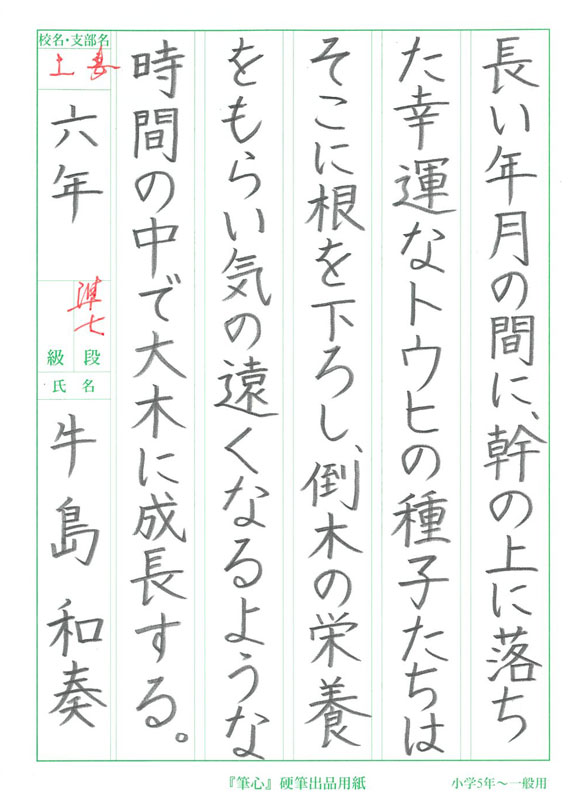 長い年月の間に、幹の上に落ち
た幸運なトウヒの種子たちは
そこに根を下ろし、倒木の栄養
をもらい気の遠くなるような
時間の中で大木に成長する。
校名・支部名
上妻
六年
準七
段
級
氏名
牛島和奏
『筆心』硬筆出品用紙
小学5年～一般用